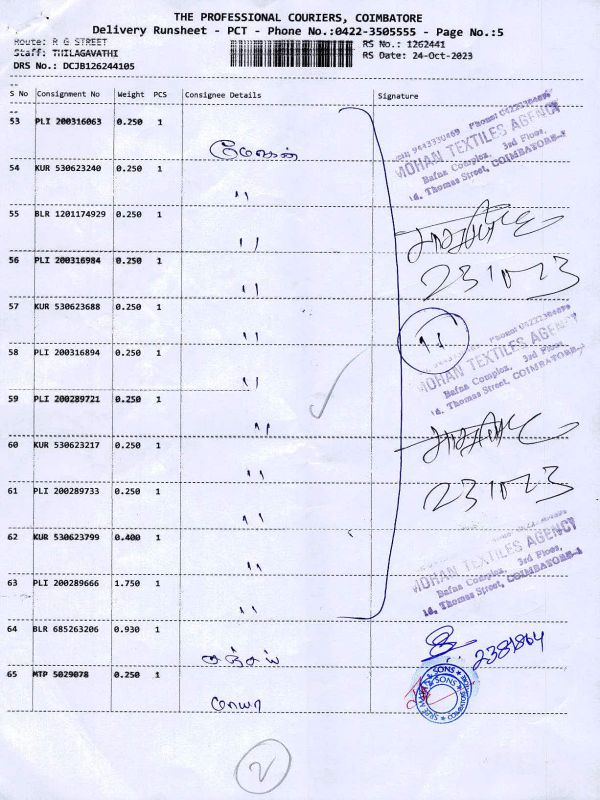 THE PROFESSIONAL COURIERS, COIMBATORE
Delivery Runsheet - PCT - Phone No.:0422-3505555 - Page No.:5
Route: R G STREET
RS No.: 1262441
Staff: THILAGAVATHI
RS Date: 24-Oct-2023
DRS No.: DCJB126244105
S No Consignment No Weight PCS Consignee Details Signature
53 PLI 200316063 0.250 1
MOHAN TEXTILES AGENCY
Bafna Complex, 3rd Floor,
Thomas Street, COIMBATORE-1
54 KUR 530623240 0.250 1
''
55 BLR 1201174929 0.250 1
''
56 PLI 200316984 0.250 1
231023
''
57 KUR 530623688 0.250 1
'' ''
58 PLI 200316894 0.250 1
MOHAN TEXTILES AGENCY
Bafna Complex, 3rd Floor,
Thomas Street, COIMBATORE-1
''
59 PLI 200289721 0.250 1
''
60 KUR 530623217 0.250 1
''
61 PLI 200289733 0.250 1
231023
''
62 KUR 530623799 0.400 1
MOHAN TEXTILES AGENCY
Bafna Complex, 3rd Floor,
''
63 PLI 200289666 1.750 1
18, Thomas Street, COIMBATORE-1
''
64 BLR 685263206 0.930 1
சஞ்சய்
65 MTP 5029078 0.250 1
& SONS
மாயா
2